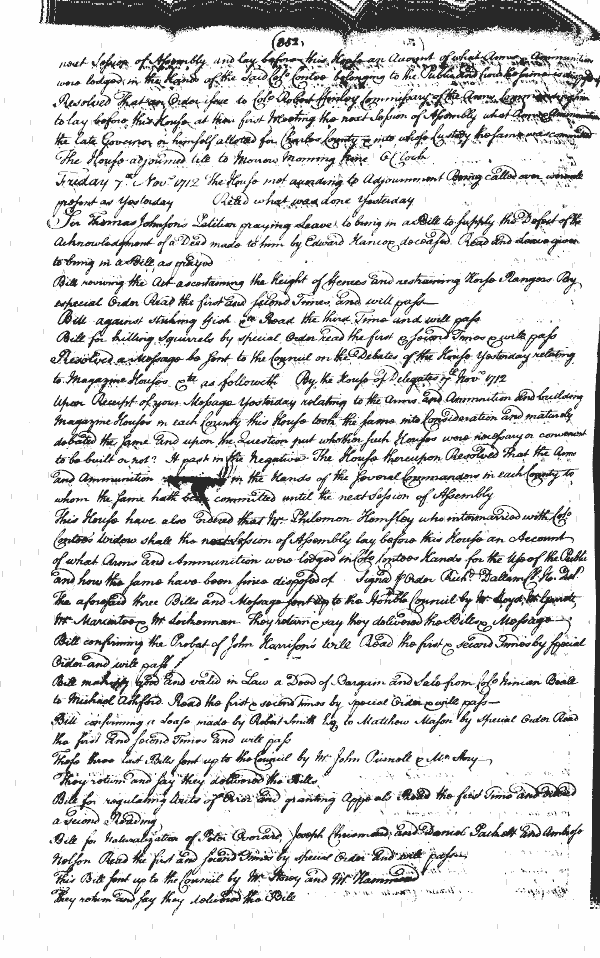 (352)
next Session of Assembly and lay before this House an Account of what Arms Ammunition
were lodged in the Hands of the Said Colo Contee belonging to the Publick and how the same is disposed of
Resolved That an Order issue to Colo Robert Commissary of the Arms
to lay before this House at the first Meeting the next Session of Assembly what Arms Ammunition
the late Governor or himself allotted for Charles County & into whose Custody the same was committed
The House adjourned till to Morrow Morning Nine O'Clock
Friday 7th Novr 1712 The House met according to Adjournment Being called over were
present as Yesterday Read what was done Yesterday
Sir Thomas Johnson's Petition praying Leave to bring in a Bill to supply the Defect of the
Acknowledgment of a Deed made to him by Edward deceased Read and Leave given
to bring in a Bill as prayed
Bill reviving the Act ascertaining the Height of Fences and restraining Horse Rangers By
especial Order Read the first and second Times, and will pass
Bill against striking Fish &ca Read the third Time and will pass
Bill for killing Squirrels by special Order read the first & second Times & will pass
Resolved a Message be sent to the Council on the Debates of the House Yesterday relating
to Magazine Houses &ca as followeth By the House of Delegates 7th Novr 1712
Upon Receipt of your Message Yesterday relating to the Arms and Ammunition and building
Magazine Houses in each County this House took the same into Consideration and maturely
debated the same And upon the Question put whether such Houses were necessary or convenient
to be built or not? It past in the Negative. The House thereupon Resolved That the Arms
and Ammunition in the Hands of the several Commanders in each County to
whom the same hath been committed until the next Session of Assembly
This House have also ordered that Mr Philemon Hemsley who intermarried with Colo
Contee's Widow shall the next Session of Assembly lay before this House an Account
of what Arms and Ammunition were lodged in Colo Contees Hands for the Use of the Publick
and how the same have been since disposed of Signd p Order Richd Dallam Cl Ho. Del.
The aforesaid three Bills and Message sent up to the Honble Council by Mr Lloyd, Mr
Mr & Mr Lockerman. They return & say they delivered the Bills & Message
Bill confirming the Probat of John Harrison's Will Read the first & second Times by special
Order and will pass
Bill making good and valid in Law a Deed of Bargain and Sale from Colo Ninian Beale
to Michael Ashford. Read the first & second times by special Order & will pass
Bill confirming a Lease made by Robert Smith Esq to Matthew Mason by special Order Read
the first and second Times and will pass
These three last Bills sent up to the Council by Mr John Purnell & Mr
They return and say they delivered the Bills
Bill for regulating Writs of Error and granting Appeals Read the first Time and
a second Reading
Bill for Naturalization of Peter Joseph and Daniel and Ambrose
Nelson Read the first and second Times by special Order and will pass
This Bill sent up to the Council by Mr and Mr Hammond
They return and say they delivered the Bill